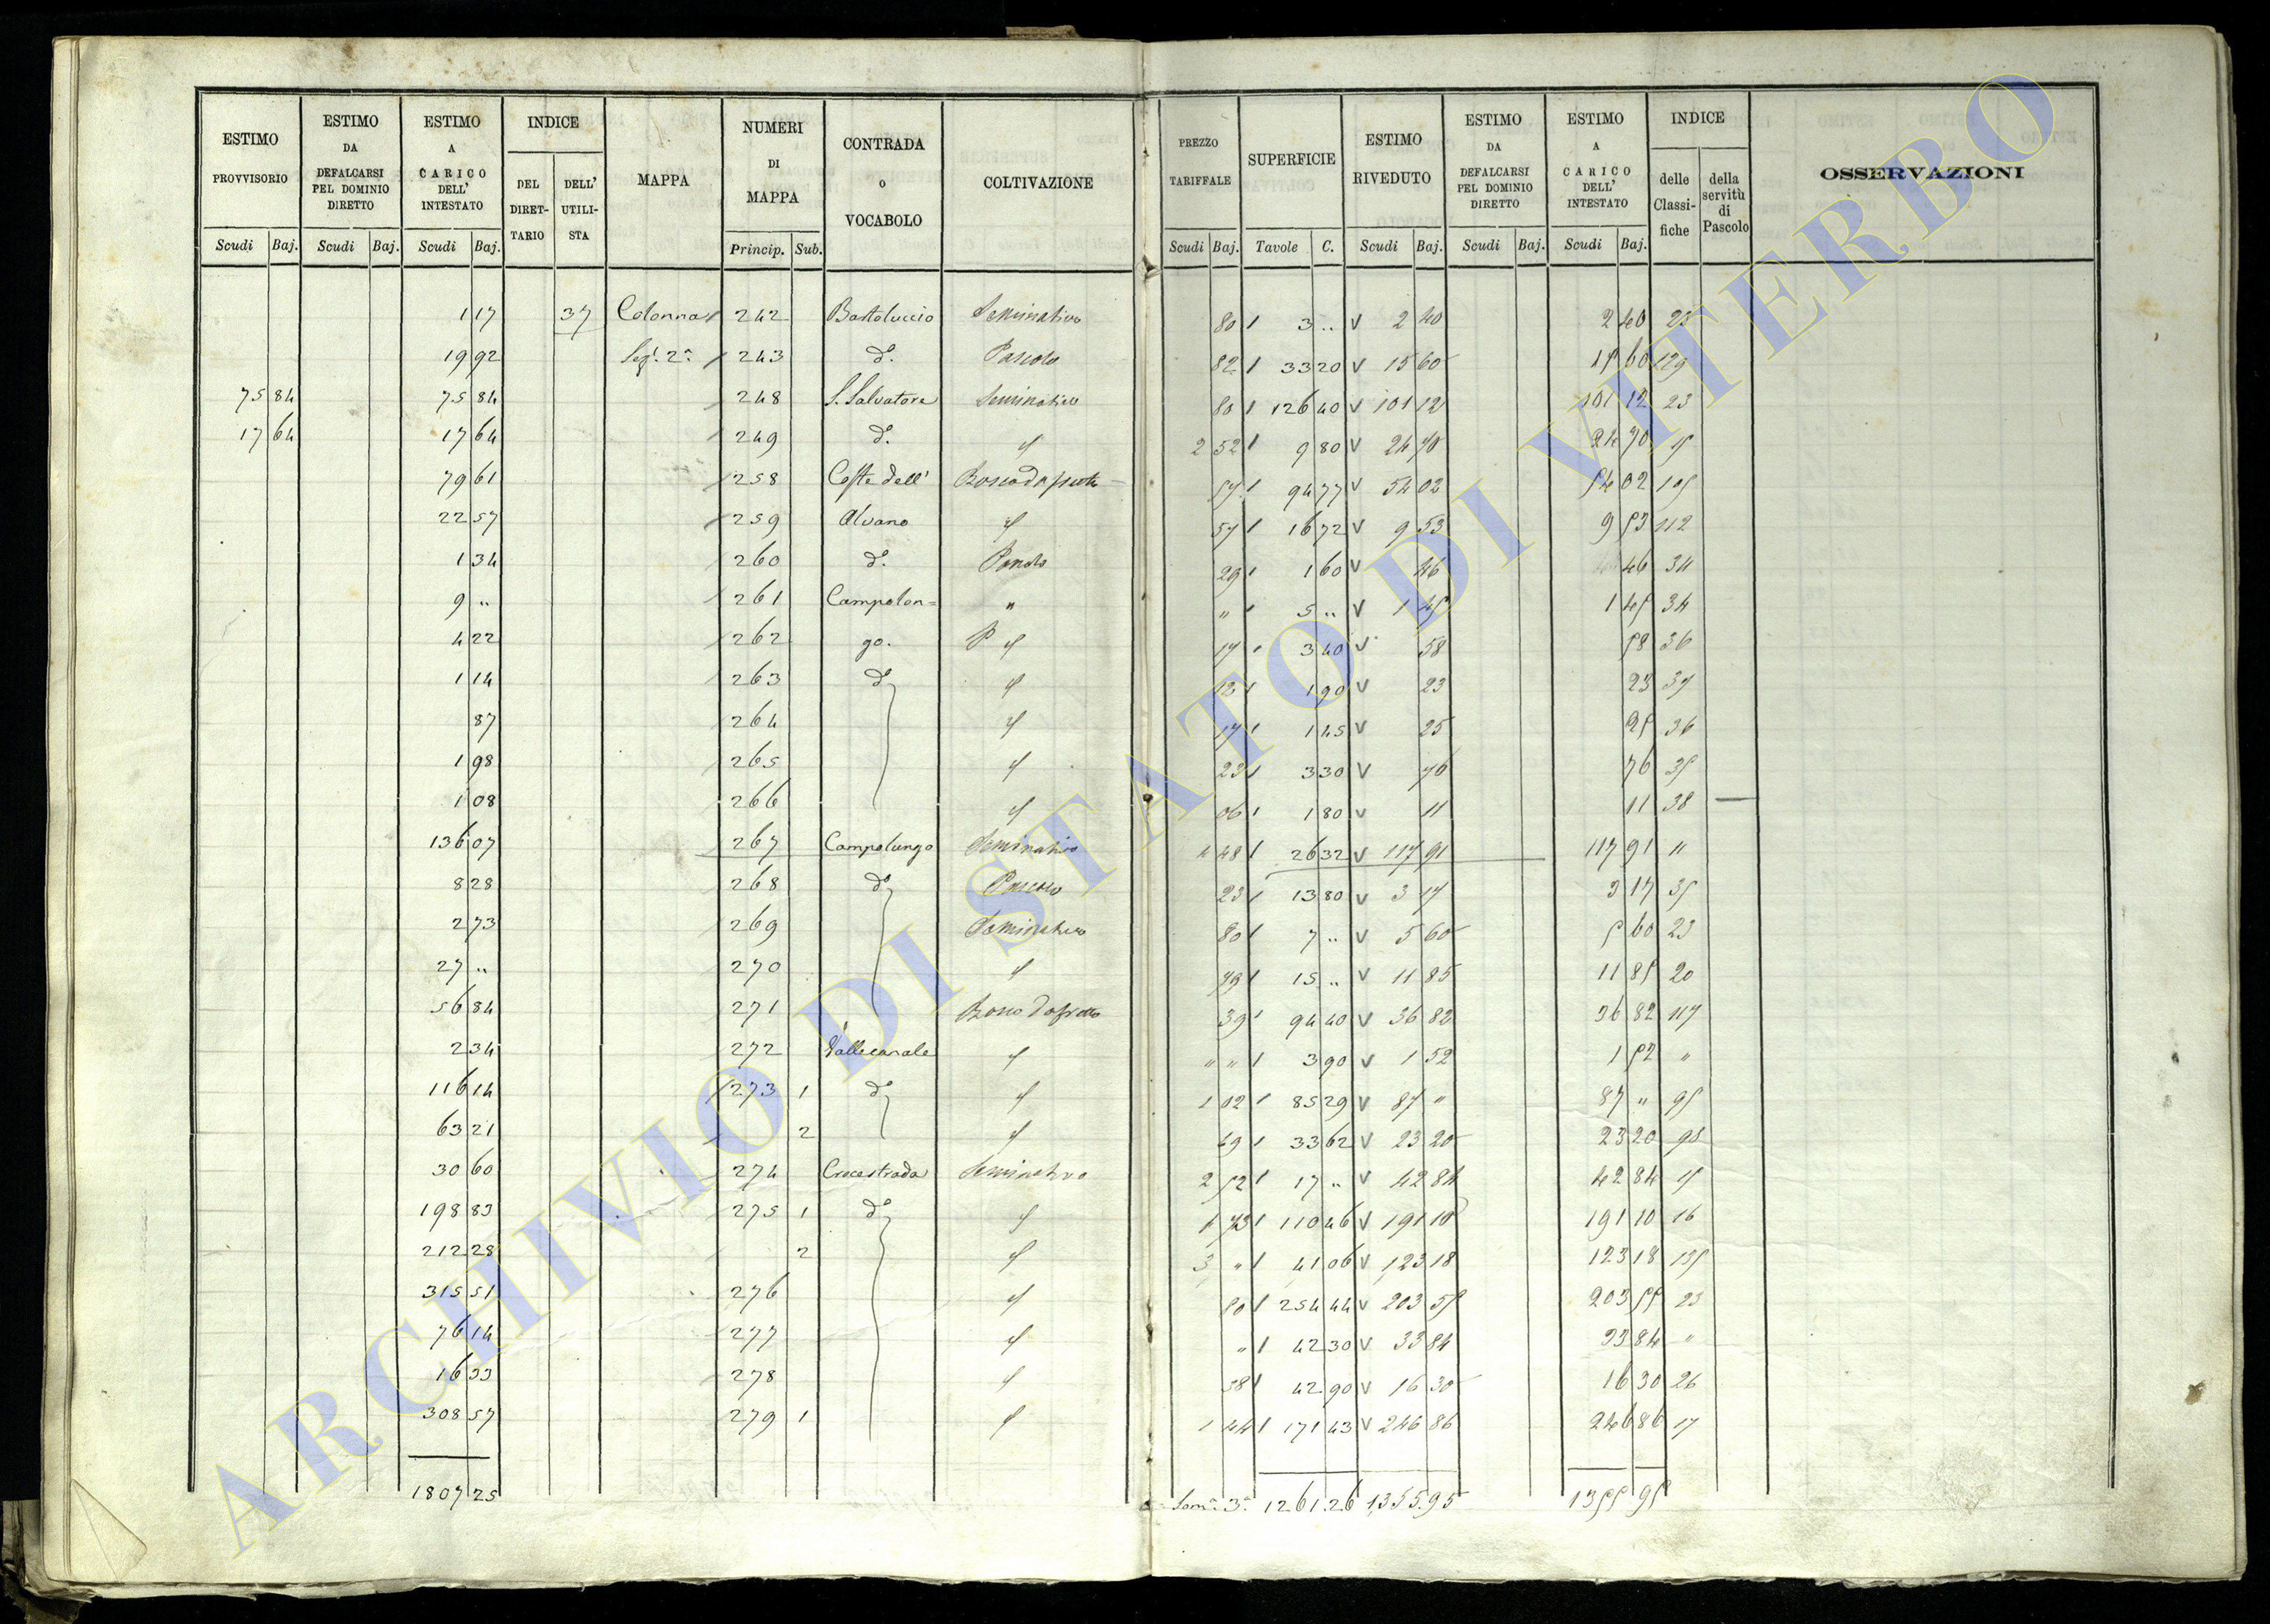 ESTIMO PROVVISORIO Scudi Baj. | ESTIMO DA DEFALCARSI PEL DOMINIO DIRETTO Scudi Baj. | ESTIMO A CARICO DELL' INTESTATO Scudi Baj. | INDICE DEL DIRETTARIO DELL' UTILISTA | MAPPA | NUMERI DI MAPPA Princip. Sub. | CONTRADA O VOCABOLO | COLTIVAZIONE | PREZZO TARIFFALE Scudi Baj. | SUPERFICIE Tavole C. | ESTIMO RIVEDUTO Scudi Baj. | ESTIMO DA DEFALCARSI PEL DOMINIO DIRETTO Scudi Baj. | ESTIMO A CARICO DELL' INTESTATO Scudi Baj. | INDICE delle Classifiche della servitù di Pascolo | OSSERVAZIONI
1 17 37 Colonna 242 Bartoluccio Seminativo 80 3 .. 2 40 2 40 23
19 92 Sez. 2a 243 do. Pascolo 82 33 20 15 60 15 60 129
75 84 75 84 248 S. Salvatore Seminativo 80 126 40 101 12 101 12 23
17 64 17 64 249 do. " 2 52 9 80 24 70 24 70 15
79 61 258 Coste dell' Bosco da frutto 57 94 77 54 02 54 02 105
22 57 259 Alvano " 57 16 72 9 53 9 53 112
1 34 260 do. Pascolo 29 1 60 46 46 34
9 .. 261 Campolon= " " 5 .. 1 45 1 45 34
4 22 262 go. P " 17 3 40 58 58 36
1 14 263 do " 12 1 90 23 23 37
87 264 " 17 1 45 25 25 36
1 98 265 " 23 3 30 76 76 35
1 08 266 " 06 1 80 11 11 38
136 07 267 Campolungo Seminativo 4 48 26 32 117 91 117 91 11
8 28 268 do Pascolo 23 13 80 3 17 3 17 35
2 73 269 Seminativo 80 7 .. 5 60 5 60 23
27 .. 270 " 79 15 .. 11 85 11 85 20
56 84 271 Bosco da frutto 39 94 40 36 82 36 82 117
2 34 272 Vallecanale " " " 3 90 1 52 1 52 "
116 14 273 1 do " 1 02 85 29 87 " 87 " 95
63 21 2 " 69 33 62 23 20 23 20 98
30 60 274 Crocestrada Seminativo 2 52 17 .. 42 84 42 84 15
198 83 275 1 do " 1 73 110 46 191 10 191 10 16
212 28 2 " 3 " 41 06 123 18 123 18 135
315 51 276 " 80 254 44 203 55 203 55 23
76 14 277 " " 42 30 33 84 33 84 "
16 33 278 " 38 42 90 16 30 16 30 26
308 57 279 1 " 1 44 171 43 246 86 246 86 17
1807 25 Som. 3a 1261.26 1355.95 1355 95
ARCHIVIO DI STATO DI VITERBO